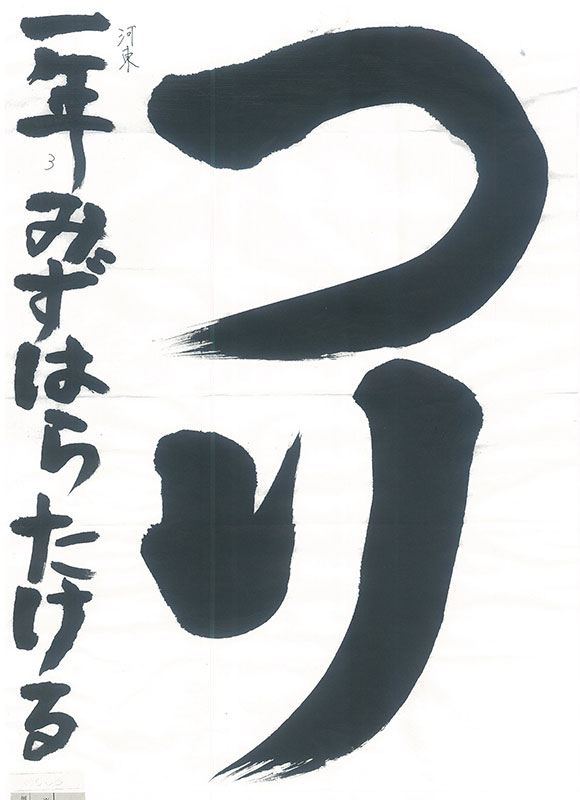 つり
河東
一年
3
みずはらたける